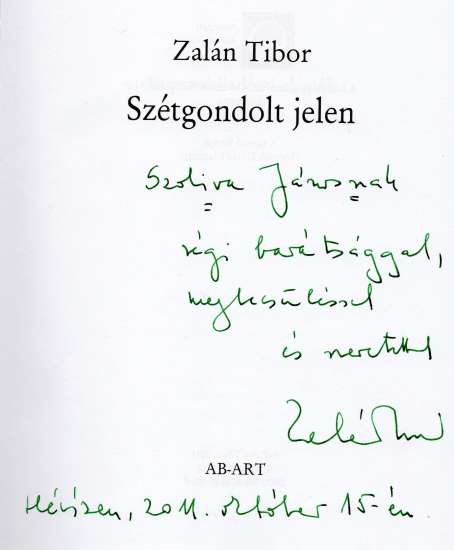 Zalán Tibor
Szétgondolt jelen
Szoliva Jánosnak
régi barátsággal,
megbecsüléssel
és szeretettel
Zalán Tibor
AB-ART
Hévízen, 2011. október 15-én.